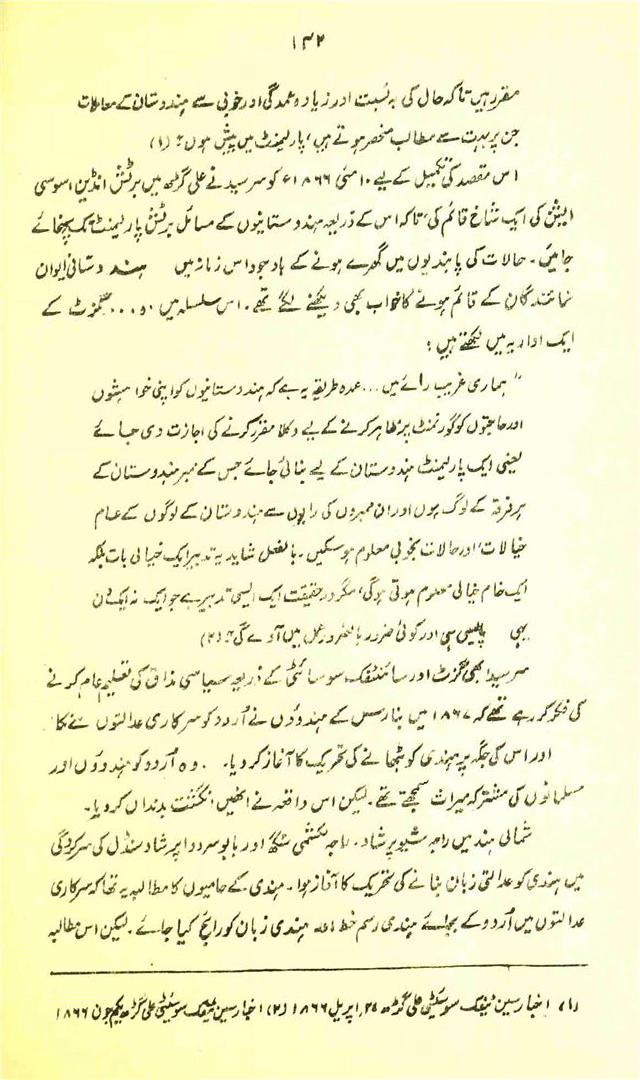 ۱۴۲
مقرر ہیں تاکہ حال کی بہ نسبت اور زیادہ عمدگی اور خوبی سے ہندوستان کے معاملات
جن پر بہت سے مطالب منحصر ہوتے ہیں، پارلیمنٹ میں پیش ہوں" (۱)
اس مقصد کی تکمیل کے لیے ۱۰ مئی ۱۸۶۶ء کو سرسید نے علی گڑھ میں برٹش انڈین اسوسی
ایشن کی ایک شاخ قائم کی، تاکہ اس کے ذریعہ ہندوستانیوں کے مسائل برٹش پارلیمنٹ تک پہنچائے
جائیں۔ حالات کی پابندیوں میں گھرے ہونے کے باوجود اس زمانہ میں ہندوستانی ایوان
نمائندگان کے قائم ہونے کا خواب بھی دیکھنے لگے تھے۔ اس سلسلہ میں وہ... گزٹ کے
ایک اداریہ میں لکھتے ہیں:
"ہماری غریب رائے میں... عمدہ طریقہ یہ ہے کہ ہندوستانیوں کو اپنی خواہشوں
اور حاجتوں کو گورنمنٹ پر ظاہر کرنے کے لیے وکلا مقرر کرنے کی اجازت دی جائے
یعنی ایک پارلیمنٹ ہندوستان کے لیے بنائی جائے جس کے ممبر ہندوستان کے
ہر فرقہ کے لوگ ہوں اور ان ممبروں کی رایوں سے ہندوستان کے لوگوں کے عام
خیالات اور حالات بخوبی معلوم ہو سکیں۔ بالفعل شاید یہ تدبیر ایک خیالی بات بلکہ
ایک خام خیالی معلوم ہوتی ہوگی، مگر درحقیقت ایک ایسی تدبیر ہے جو ایک نہ ایک دن
یہی پالیسی سہی اور کوئی ضرور بالضرور عمل میں آوے گی" (۲)
سرسید ابھی گزٹ اور سائنٹفک سوسائٹی کے ذریعہ سیاسی مذاق کی تعلیم عام کرنے
کی فکر کر رہے تھے کہ ۱۸۶۷ میں بنارس کے ہندوؤں نے اردو کو سرکاری عدالتوں سے
اور اس کی جگہ پر ہندی کو بٹھانے کی تحریک کا آغاز کر دیا۔ وہ اُردو کو ہندوؤں اور
مسلمانوں کی مشترکہ میراث سمجھتے تھے۔ لیکن اس واقعہ نے انھیں انگشت بدنداں کر دیا۔
شمالی ہند میں راجہ شیو پرشاد، راجہ لکشمی سنگھ اور بابو سرودا پرشاد سنڈل کی سرکردگی
میں ہندی کو عدالتی زبان بنانے کی تحریک کا آغاز ہوا۔ ہندی کے حامیوں کا مطالبہ یہ تھا کہ سرکاری
عدالتوں میں اُردو کے بجائے ہندی رسم خط اور ہندی زبان کو رائج کیا جائے۔ لیکن اس مطالبہ
(۱) اخبار سین ٹیفک سوسئیٹی علی گڑھ ۲۷ اپریل ۱۸۶۶ (۲) اخبار سین ٹیفک سوسئیٹی علی گڑھ یکم جون ۱۸۶۶